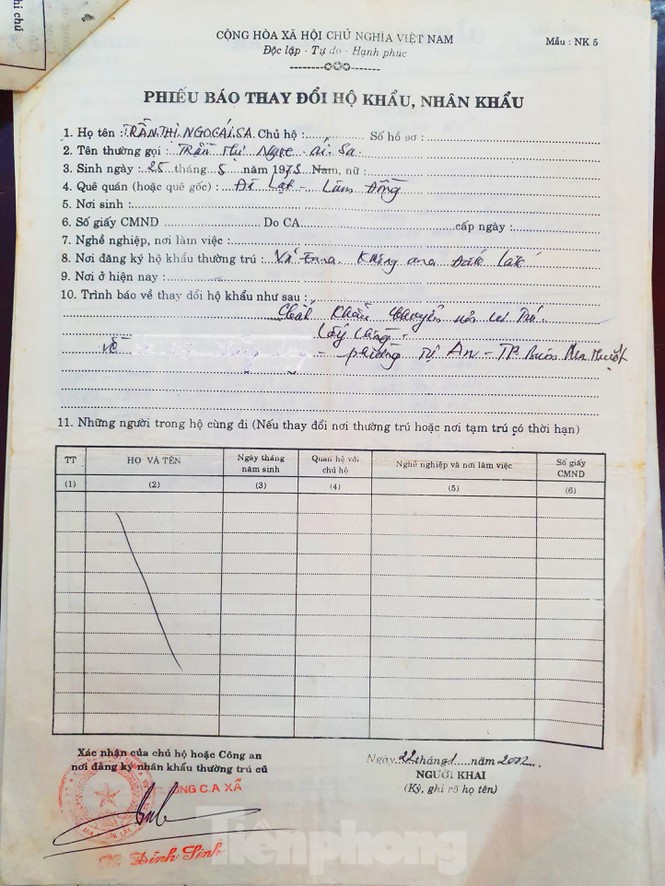 hi chú
CỘNG HÒA XÃ HỘI CHỦ NGHĨA VIỆT NAM
Mẫu : NK 5
Độc lập - Tự do - Hạnh phúc
PHIẾU BÁO THAY ĐỔI HỘ KHẨU, NHÂN KHẨU
1. Họ tên : TRẦN THỊ NGỌC ÁI SA. Chủ hộ : Số hồ sơ :
2. Tên thường gọi : Trần Thị Ngọc Ái Sa.
3. Sinh ngày : 25 tháng 5 năm 1973 Nam, nữ :
4. Quê quán (hoặc quê gốc) : Đà Lạt - Lâm Đồng
5. Nơi sinh :
6. Số giấy CMND Do CA cấp ngày :
7. Nghề nghiệp, nơi làm việc :
8. Nơi đăng ký hộ khẩu thường trú : Xã Krông Ana Đắk Lắk
9. Nơi ở hiện nay :
10. Trình báo về thay đổi hộ khẩu như sau :
Cắt Khẩu Chuyển nơi cư Trú.
về - phường Tự An - TP. Buôn Ma Thuột
11. Những người trong hộ cùng đi (Nếu thay đổi nơi thường trú hoặc nơi tạm trú có thời hạn)
TT HỌ VÀ TÊN Ngày tháng năm sinh Quan hệ với chủ hộ Nghề nghiệp và nơi làm việc Số giấy CMND
(1) (2) (3) (4) (5) (6)
Xác nhận của chủ hộ hoặc Công an
nơi đăng ký nhân khẩu thường trú cũ
Ngày 22 tháng 1 năm 2002
NGƯỜI KHAI
(Ký, ghi rõ họ tên)
C.A XÃ
Đình Sinh
Tiênphong